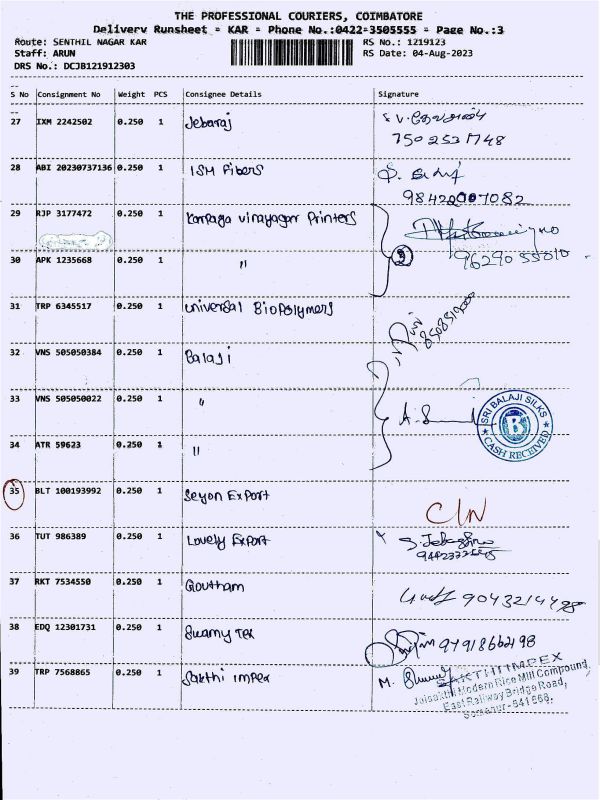 THE PROFESSIONAL COURIERS, COIMBATORE
Delivery Runsheet - KAR - Phone No.:0422-3505555 - Page No.:3
Route: SENTHIL NAGAR KAR RS No.: 1219123
Staff: ARUN RS Date: 04-Aug-2023
DRS No.: DCJB121912303
S No Consignment No Weight PCS Consignee Details Signature
27 IXM 2242502 0.250 1 Jebaraj
7502531748
28 ABI 20230737136 0.250 1 ISM Fibers
29 RJP 3177472 0.250 1 Karpaga vinayagar Printers
30 APK 1235668 0.250 1 " 9629055010
31 TRP 6345517 0.250 1 universal BioPolymers
32 VNS 505050384 0.250 1 Balaji
33 VNS 505050022 0.250 1 "
SRI BALAJI SILKS
B
CASH RECEIVED
34 ATR 59623 0.250 1 "
35 BLT 100193992 0.250 1 Seyon Export
C/N
36 TUT 986389 0.250 1 Lovely Export
37 RKT 7534550 0.250 1 Goutham
9043214498
38 EDQ 12301731 0.250 1 Swamy Tex
39 TRP 7568865 0.250 1 Sakthi impex M.
SAKTHI IMPEX
Jaisakthi Modern Rice Mill Compound,
East Railway Bridge Road,
Somanur-641668.